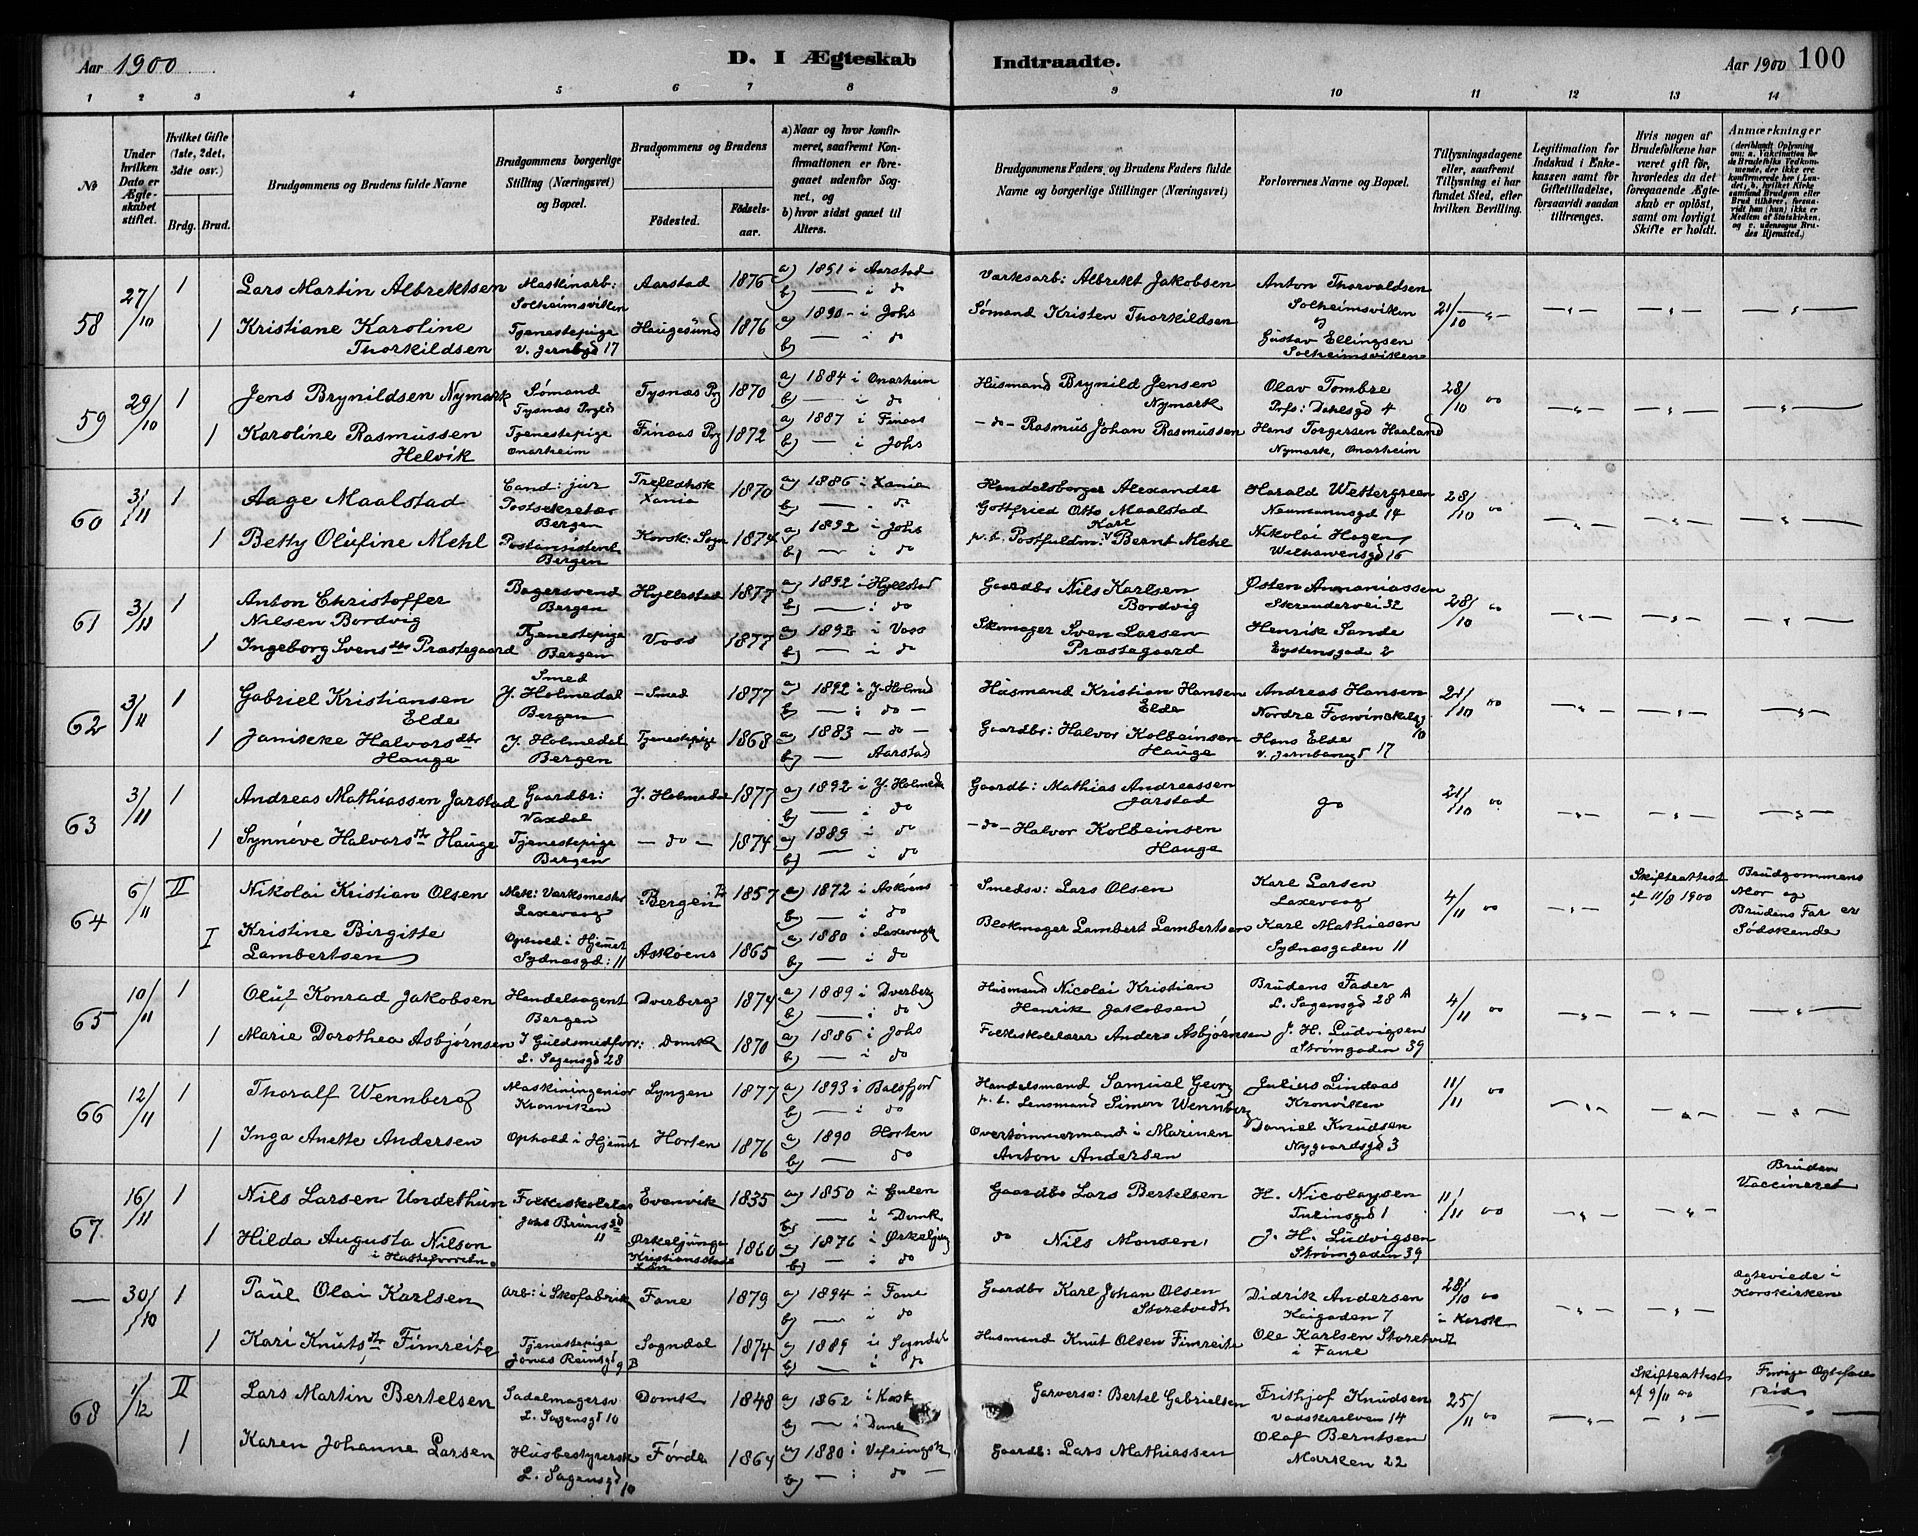 Aar 1900
D. I Ægteskab Indtraadte.
Aar 1900 100
1 2 3 4 5 6 7 8 9 10 11 12 13 14
No
Under hvilken Dato er Ægteskabet stiftet.
Hvilket Gifte (1ste, 2det, 3die osv.)
Brdg. Brud.
Brudgommens og Brudens fulde Navne
Brudgommens borgerlige Stilling (Næringsvei) og Bopæl.
Brudgommens og Brudens
Fødested. Fødselsaar.
a) Naar og hvor konfirmeret, saafremt Konfirmationen er foregaaet udenfor Sognet, og
b) hvor sidst gaaet til Alters.
Brudgommens Faders og Brudens Faders fulde Navne og borgerlige Stillinger (Næringsvei)
Forlovernes Navne og Bopæl.
Tillysningsdagene eller, saafremt Tillysning ei har fundet Sted, efter hvilken Bevilling.
Legitimation for Indskud i Enkekassen samt for Giftetilladelse, forsaavidt saadan tiltrænges.
Hvis nogen af Brudefolkene har været gift før, hvorledes da det foregaaende Ægteskab er opløst, samt om lovligt Skifte er holdt.
Anmærkninger
58 27/10 1 Lars Martin Albrektsen Maskinarb: Solheimsviken Aarstad 1876 a) 1891 i Aarstad b) — i do Værksarb: Albrekt Jakobsen Anton Thorvaldsen Solheimsviken 21/10
1 Kristiane Karoline Thorkildsen Tjenestepige v. Jernbgd 17 Haugesund 1876 a) 1890 - i Johs b) — i do Sømand Kristen Thorkildsen og Gustav Ellingsen Solheimsviken
59 29/10 1 Jens Brynildsen Nymark Sømand Tysnæs Prgld Tysnæs Prg 1870 a) 1884 i Onarheim b) — i do Husmand Brynild Jensen Nymark Olav Tombre Prfs: Dahlsgd 4 28/10 00
1 Karoline Rasmussen Helvik Tjenestepige Onarheim Finaas Prg 1872 a) 1887 i Finaas b) — i Johs - do - Rasmus Johan Rasmussen Hans Torgersen Haaland Nymark, Onarheim
60 3/11 1 Aage Maalstad Cand: jur Postsekretær Bergen Trefoldhsk Xania 1870 a) 1886 i Xania b) — . do Handelsborger Alexander Gottfried Otto Maalstad Harald Wettergreen Neumannsgd 14 28/10 00
1 Betty Olufine Mehl Postassistent Bergen Korsk: Sogn 1874 a) 1892 i Johs b) — i do p.t. Postfuldm: Karl Bernt Mehl Nikolai Hagen 15
61 3/11 1 Anton Christoffer Nilsen Bordvig Bagersvend Bergen Hyllestad 1877 a) 1892 i Hyllstad b) — i do Gaardbr Nils Karlsen Bordvig Østen Annaniassen 32 28/10 00
1 Ingeborg Svensdtr Præstegaard Tjenestepige Bergen Voss 1877 a) 1892 i Voss b) — i do Skomager Sven Larsen Præstegaard Henrik Sande Eystensgade 2
62 3/11 1 Gabriel Kristiansen Elde Smed Y. Holmedal Bergen - Smed 1877 a) 1892 i Y. Holmd b) — i do - Husmand Kristian Hansen Elde Andreas Hansen Nordre 10 21/10 00
1 Janikke Halvorsdtr Hauge Y. Holmedal Bergen Tjenestepige 1868 a) 1883 - do - b) — Aarstad Gaardbr: Halvor Kolbeinsen Hauge Hans Elde v. Jernbanegd 17
63 3/11 1 Andreas Mathiassen Jarstad Gaardbr: Vaxdal Y. Holmedal 1877 a) 1892 i Y. Holmedl b) — i do Gaardb: Mathias Andreassen Jarstad do 21/10 00
1 Synnøve Halvorsdtr Hauge Tjenestepige Bergen - do - 1874 a) 1889 i do b) — i do - do - Halvor Kolbeinsen Hauge
64 6/11 II Nikolai Kristian Olsen Mek: Værksmester Laxevaag Bergen 1857 a) 1872 i Askøens b) — i do Smedsv: Lars Olsen Karl Larsen Laxevaag 4/11 00 Skifteattest af 11/8 1900 Brudgommens Mor og Brudens Far er Sødskende
I Kristine Birgitte Lambertsen Ophold i Hjemet Sydnæsgd: 11 Askøens 1865 a) 1880 i Laxevaag b) — i do Blokmager Lambert Lambertsen Karl Mathiesen Sydnæsgaden 11
65 10/11 1 Oluf Konrad Jakobsen Handelsagent Bergen Dverberg 1874 a) 1889 i Dverberg b) — i do Husmand Nicolai Kristian Henrik Jakobsen Brudens Fader L. Sagensgd 28 A 4/11 00
1 Marie Dorothea Asbjørnsen I Guldsmedforr: L. Sagensgd 28 Domk 1870 a) 1886 i Johs b) — i do Folkeskolelærer Anders Asbjørnsen J. H. Ludvigsen Strømgaden 39
66 12/11 1 Thoralf Wennberg Maskiningeniør Kronviken Lyngen 1877 a) 1893 i Balsfjord b) — i do Handelsmand Samual Georg p.t. Lensmand Simon Wennberg Juliers Lindaas Kronviken 11/11 00
1 Inga Anette Andersen Ophold i Hjemmet Horten 1876 a) 1890 Horten b) — do Overtømmermand i Marinen Anton Andersen Daniel Knudsen Nygaardsgd 3
67 16/11 1 Nils Larsen Uordethun Folkeskolelær Johs Brunsgd 11 Evenvik 1835 a) 1850 i Gulen b) — i Domk Gaardbr Lars Bertelsen H. Nicolaysen Tulinsgd 1 11/11 00 Bruden Vaccineret
1 Hilda Augusta Nilson i Hatteforretn. Ørkeljunga Kristianstads Län 1860 a) 1876 i Ørkeljung b) — i do do Nils Monsen J. H. Ludvigsen Strømgaden 39
— 30/10 1 Paul Olai Karlsen Arb: i Skofabrik Fane 1879 a) 1894 i Fane b) — i do Gaardbr Karl Johan Olsen Storetvedt Didrik Andersen Haigaden 7 28/10 00 i Korsk Ægteviede i Korskirken
1 Kari Knutsdtr Fimreite Tjenestepige Jonas Reinsgd 9 B Sogndal 1874 a) 1889 i Sogndal b) — i do Husmand Knut Olsen Fimreite Ole Karlsen Storetvedt i Fane
68 1/12 II Lars Martin Bertelsen Sadelmagersv L. Sagensgd 10 Domk 1848 a) 1862 i Kosk b) — i Domk Garversv: Bertel Gabrielsen Frithjof Knudsen Vadskerelven 14 25/11 00 Skifteattest af 9/11 00 Forrige Ægtefælle
1 Karen Johanne Larsen Husbestyrerske L. Sagensgd 10 Førde 1864 a) 1880 i Vefringsk b) — i do — Gaardb: Lars Mathiassen Olaf Berntsen Marken 22